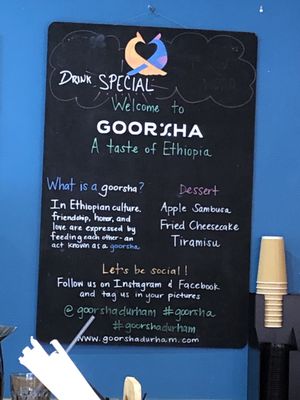 DRINK SPECIAL
Welcome to
GOORSHA
A taste of Ethiopia
What is a goorsha?
In Ethiopian culture,
friendship, honor, and
love are expressed by
feeding each other - an
act known as a goorsha
Dessert
Apple Sambusa
Fried Cheesecake
Tiramisu
Let's be social!
Follow us on Instagram & Facebook
and tag us in your pictures
@goorshadurham #goorsha
#goorshadurham
www.goorshadurham.com